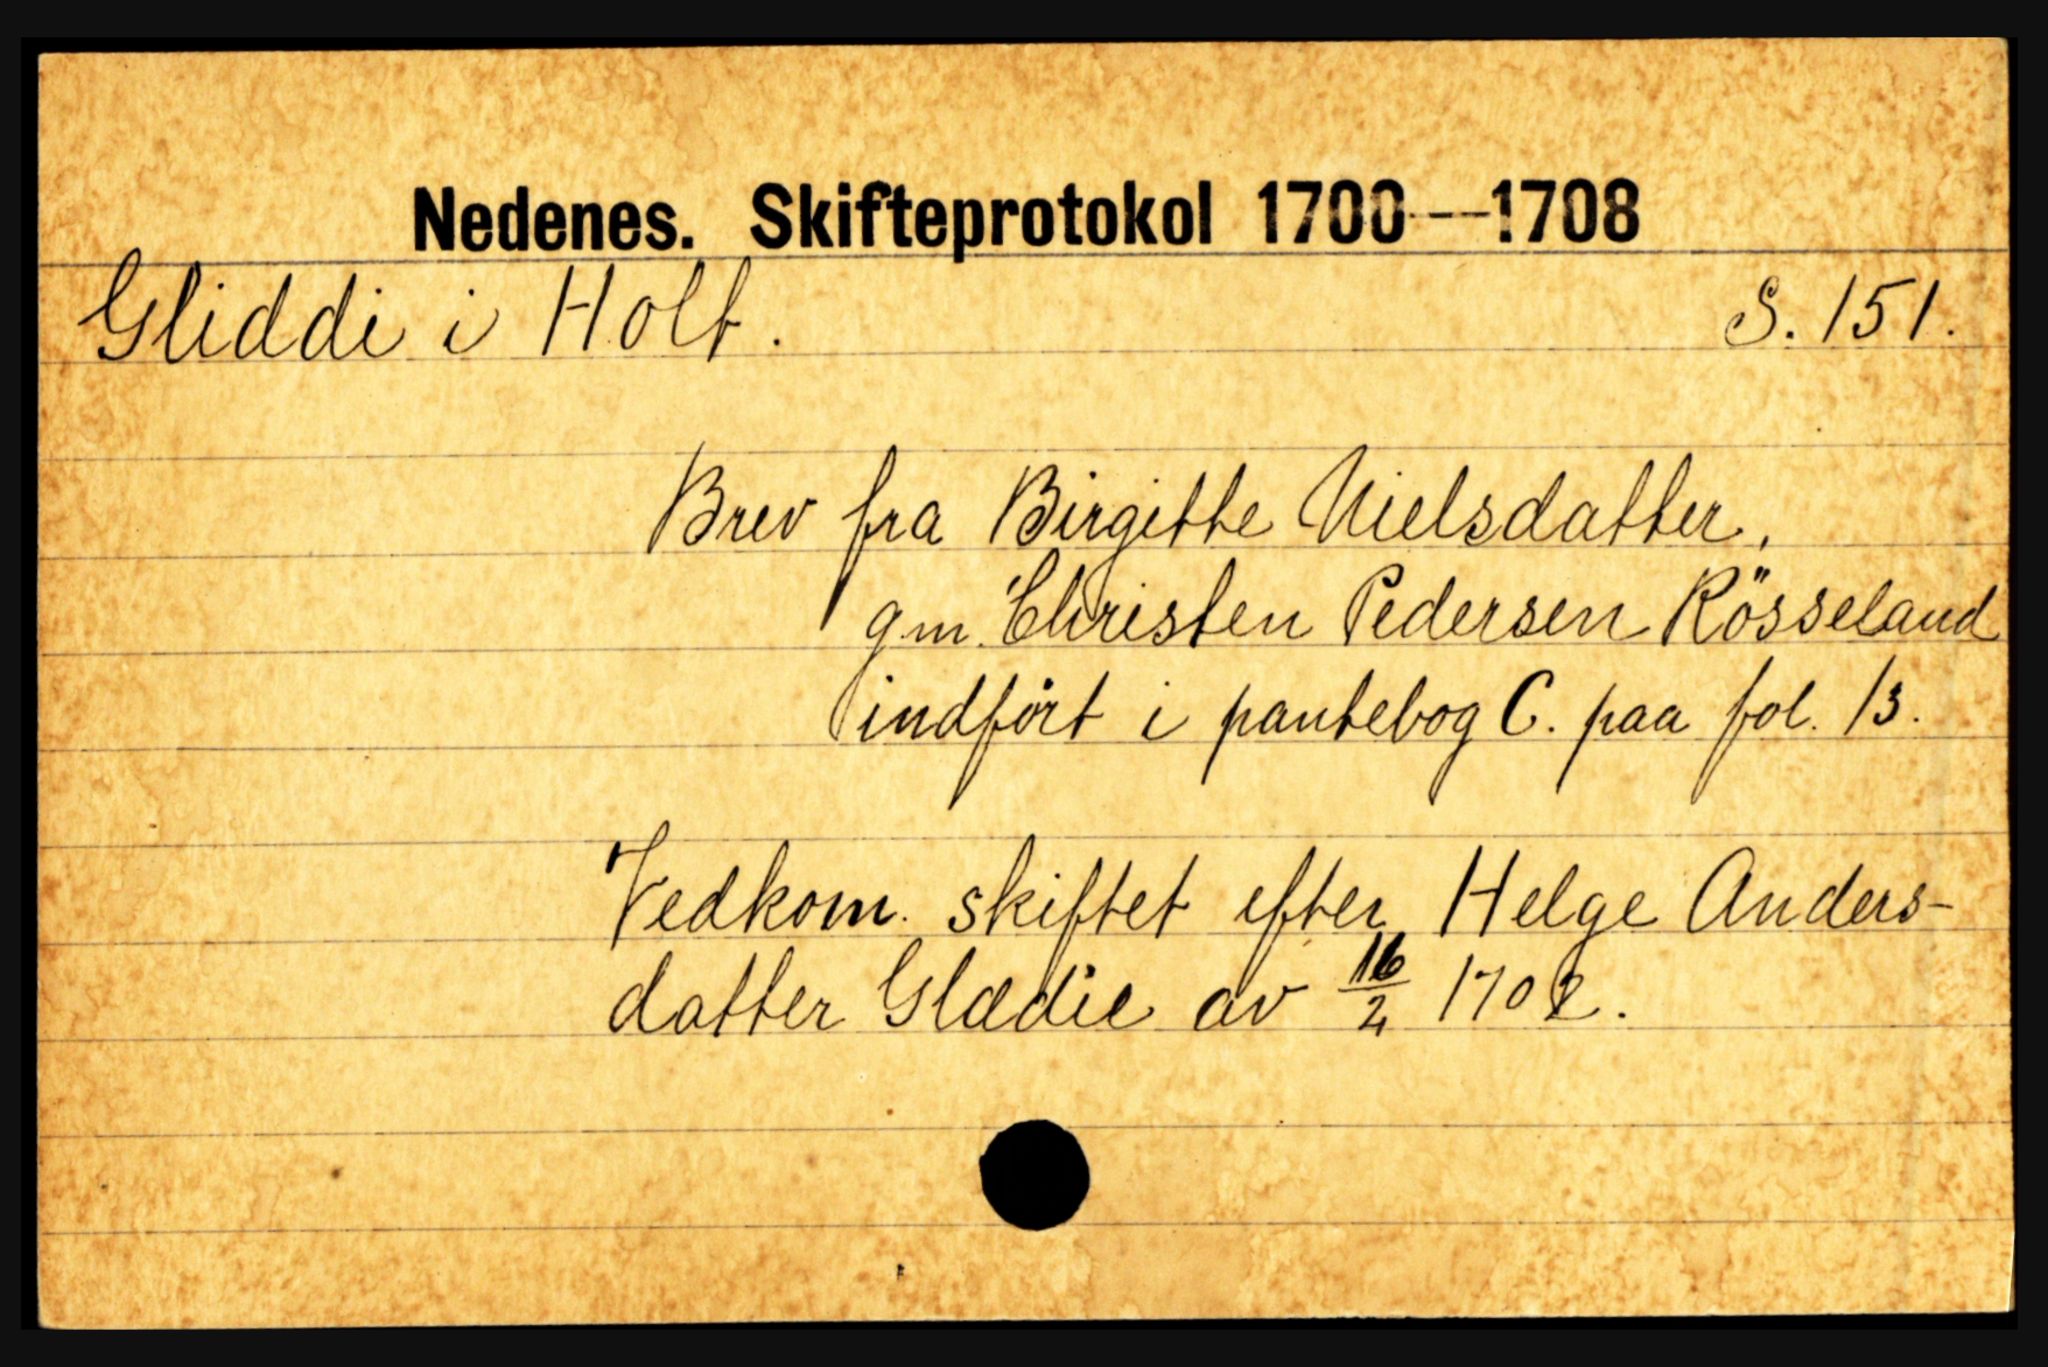 Nedenes. Skifteprotokol 1700--1708
Gliddi i Holt. S. 151.
Brev fra Birgitte Nielsdatter,
g.m. Christen Pedersen Rösseland
indført i pantebog C. paa fol. 13.
Vedkom. skiftet efter Helge Anders-
datter Glædie av 16/2 1702.